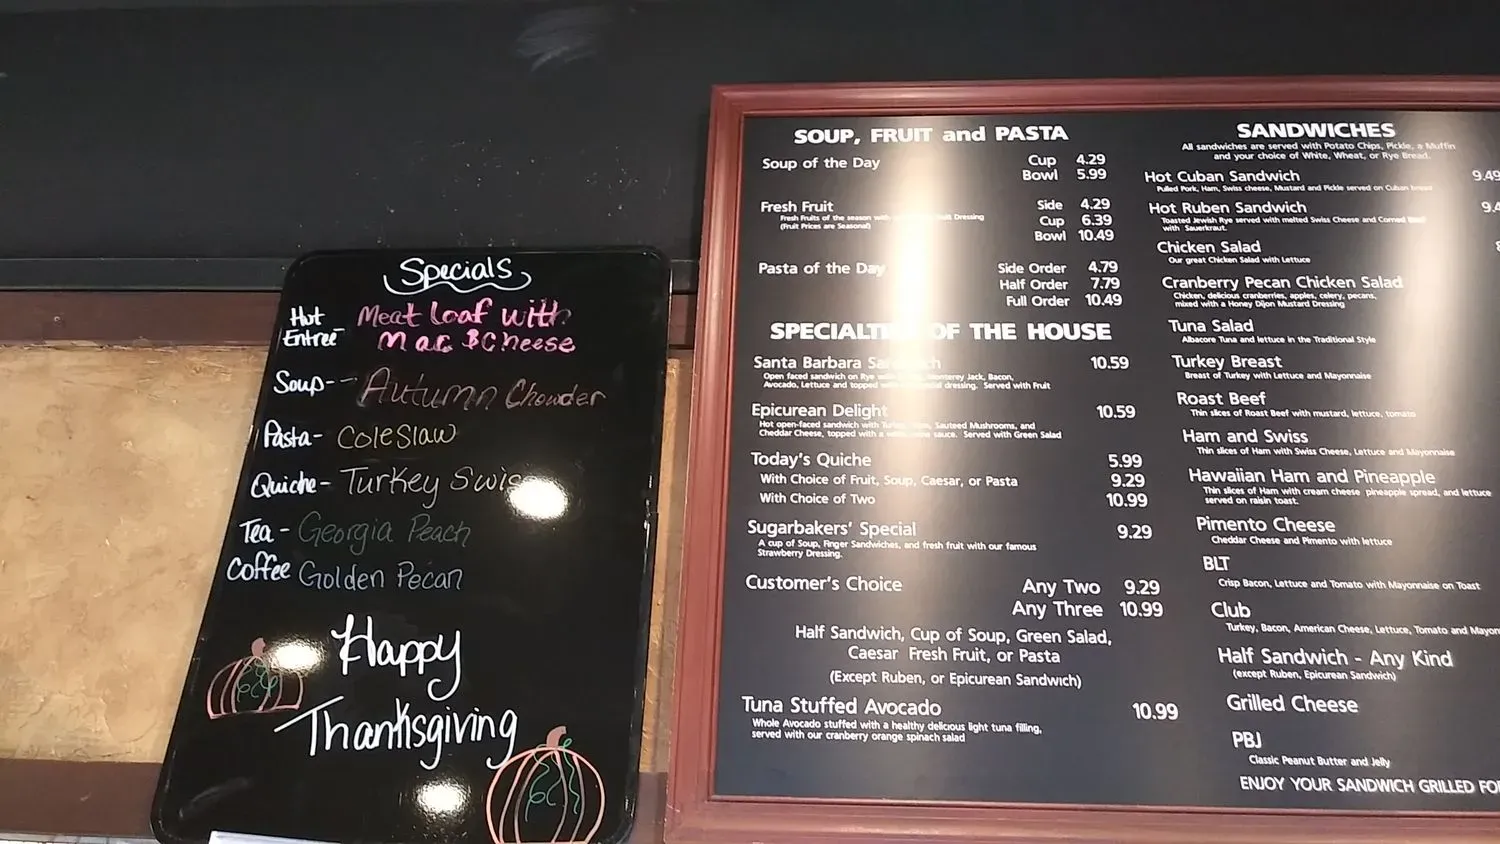 Specials
Hot Entree - Meat Loaf with Mac & Cheese
Soup -- Autumn Chowder
Pasta - Coleslaw
Quiche - Turkey Swiss
Tea - Georgia Peach
Coffee Golden Pecan
Happy
Thanksgiving
SOUP, FRUIT and PASTA
Soup of the Day Cup 4.29
Bowl 5.99
Fresh Fruit Side 4.29
Fresh Fruits of the season with Fruit Dressing
Cup 6.39
(Fruit Prices are Seasonal)
Bowl 10.49
Pasta of the Day Side Order 4.79
Half Order 7.79
Full Order 10.49
SPECIALTIES OF THE HOUSE
Santa Barbara Sandwich 10.59
Open faced sandwich on Rye with Monterey Jack, Bacon,
Avocado, Lettuce and topped dressing. Served with Fruit
Epicurean Delight 10.59
Hot open-faced sandwich with Turkey, Sauteed Mushrooms, and
Cheddar Cheese, topped with a sauce. Served with Green Salad
Today's Quiche 5.99
With Choice of Fruit, Soup, Caesar, or Pasta 9.29
With Choice of Two 10.99
Sugarbakers' Special 9.29
A cup of Soup, Finger Sandwiches, and fresh fruit with our famous
Strawberry Dressing.
Customer's Choice Any Two 9.29
Any Three 10.99
Half Sandwich, Cup of Soup, Green Salad,
Caesar Fresh Fruit, or Pasta
(Except Ruben, or Epicurean Sandwich)
Tuna Stuffed Avocado 10.99
Whole Avocado stuffed with a healthy delicious light tuna filling,
served with our cranberry orange spinach salad
SANDWICHES
All sandwiches are served with Potato Chips, Pickle, a Muffin
and your choice of White, Wheat, or Rye Bread.
Hot Cuban Sandwich 9.49
Pulled Pork, Ham, Swiss cheese, Mustard and Pickle served on Cuban bread
Hot Ruben Sandwich 9.4
Toasted Jewish Rye served with melted Swiss Cheese and Corned Beef
with Sauerkraut.
Chicken Salad
Our great Chicken Salad with Lettuce
Cranberry Pecan Chicken Salad
Chicken, delicious cranberries, apples, celery, pecans,
mixed with a Honey Dijon Mustard Dressing
Tuna Salad
Albacore Tuna and lettuce in the Traditional Style
Turkey Breast
Breast of Turkey with Lettuce and Mayonnaise
Roast Beef
Thin slices of Roast Beef with mustard, lettuce, tomato
Ham and Swiss
Thin slices of Ham with Swiss Cheese, Lettuce and Mayonnaise
Hawaiian Ham and Pineapple
Thin slices of Ham with cream cheese pineapple spread, and lettuce
served on raisin toast.
Pimento Cheese
Cheddar Cheese and Pimento with lettuce
BLT
Crisp Bacon, Lettuce and Tomato with Mayonnaise on Toast
Club
Turkey, Bacon, American Cheese, Lettuce, Tomato and Mayon
Half Sandwich - Any Kind
(except Ruben, Epicurean Sandwich)
Grilled Cheese
PBJ
Classic Peanut Butter and Jelly
ENJOY YOUR SANDWICH GRILLED FO